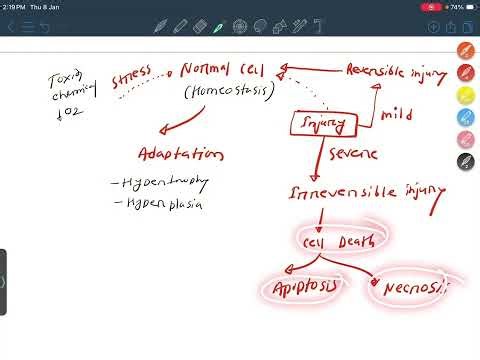 2:19 PM Thu 8 Jan
74%
Toxin
chemical
↓O2
Stress
Normal Cell
(Homeostasis)
Reversible injury
Injury
mild
Adaptation
- Hypertrophy
- Hyperplasia
Severe
Irreversible injury
Cell Death
Apoptosis
Necrosis